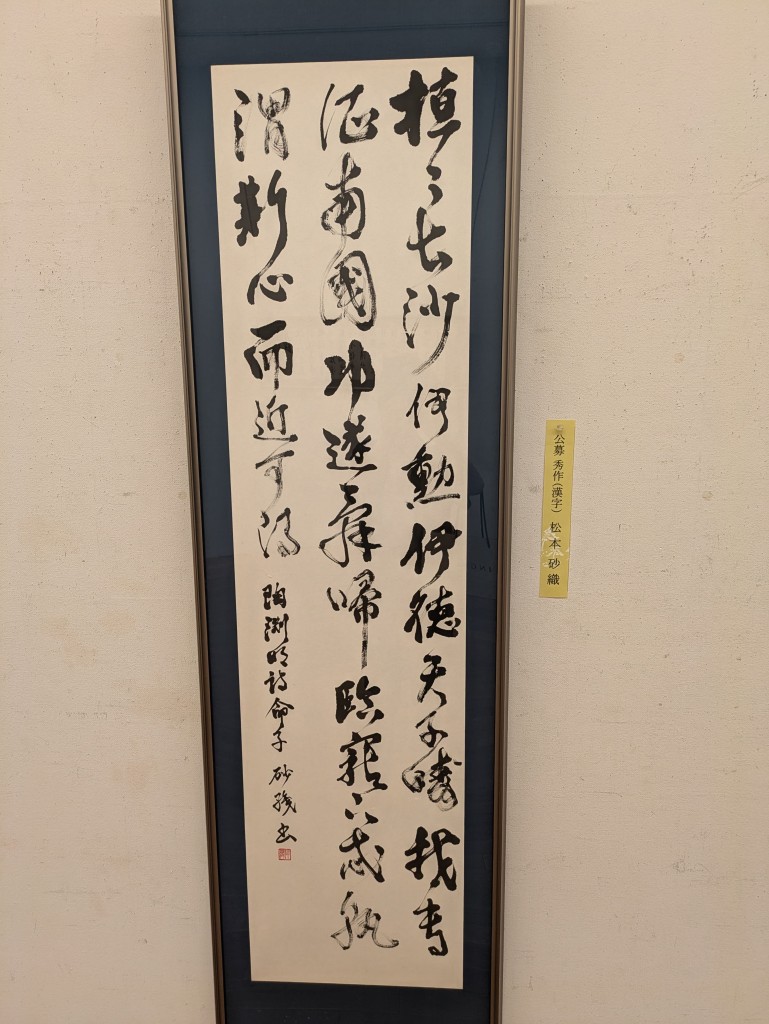 桓々長沙伊勲伊徳天子疇我専
征南國功遂辞帰臨寵不忒孰
謂斯心而近可得
陶渊明詩命子 砂織書
公募 秀作(漢字) 松本砂織